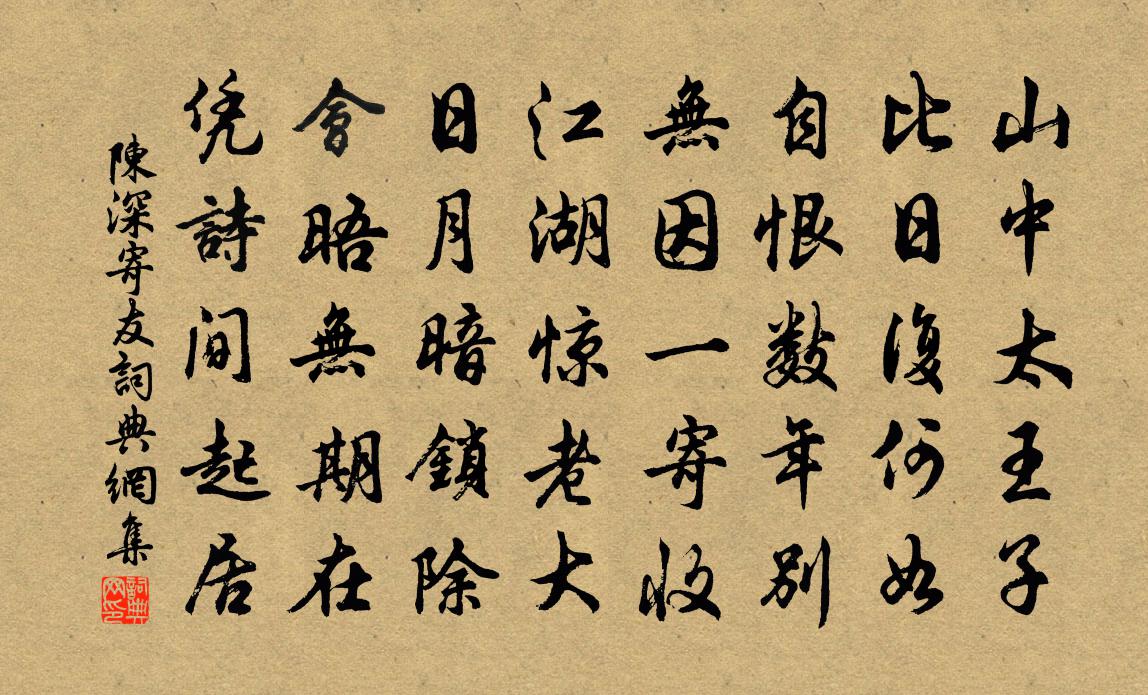 山中太王子
比日復何如
自恨數年別
無因一寄收
江湖惊老大
日月暗鎖除
會晤無期在
凭詩间起居
陳深寄友詞典網集
詞典网印